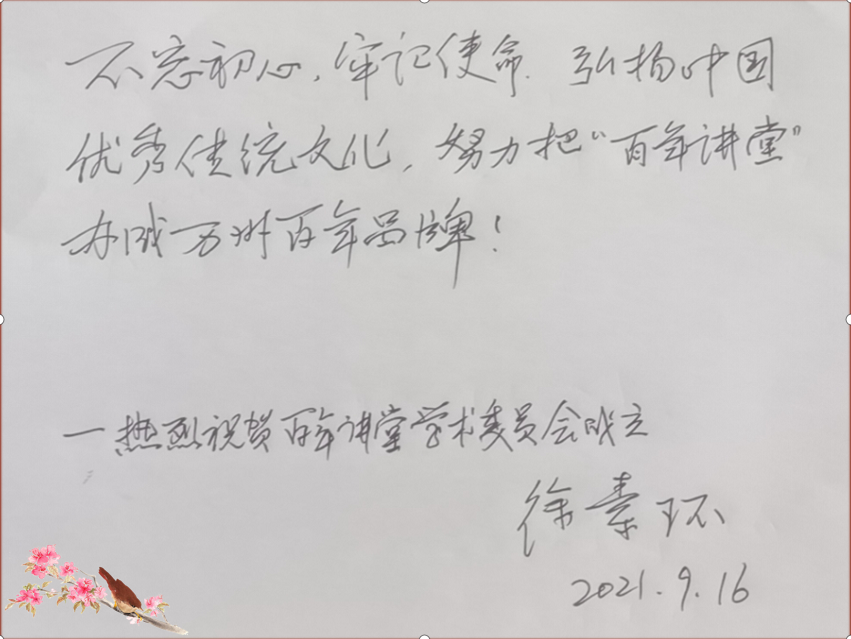 不忘初心，牢记使命．弘扬中国
优秀传统文化，努力把“百年讲堂”
办成万州百年品牌！
一热烈祝贺百年讲堂学术委员会成立
徐素环
2021.9.16